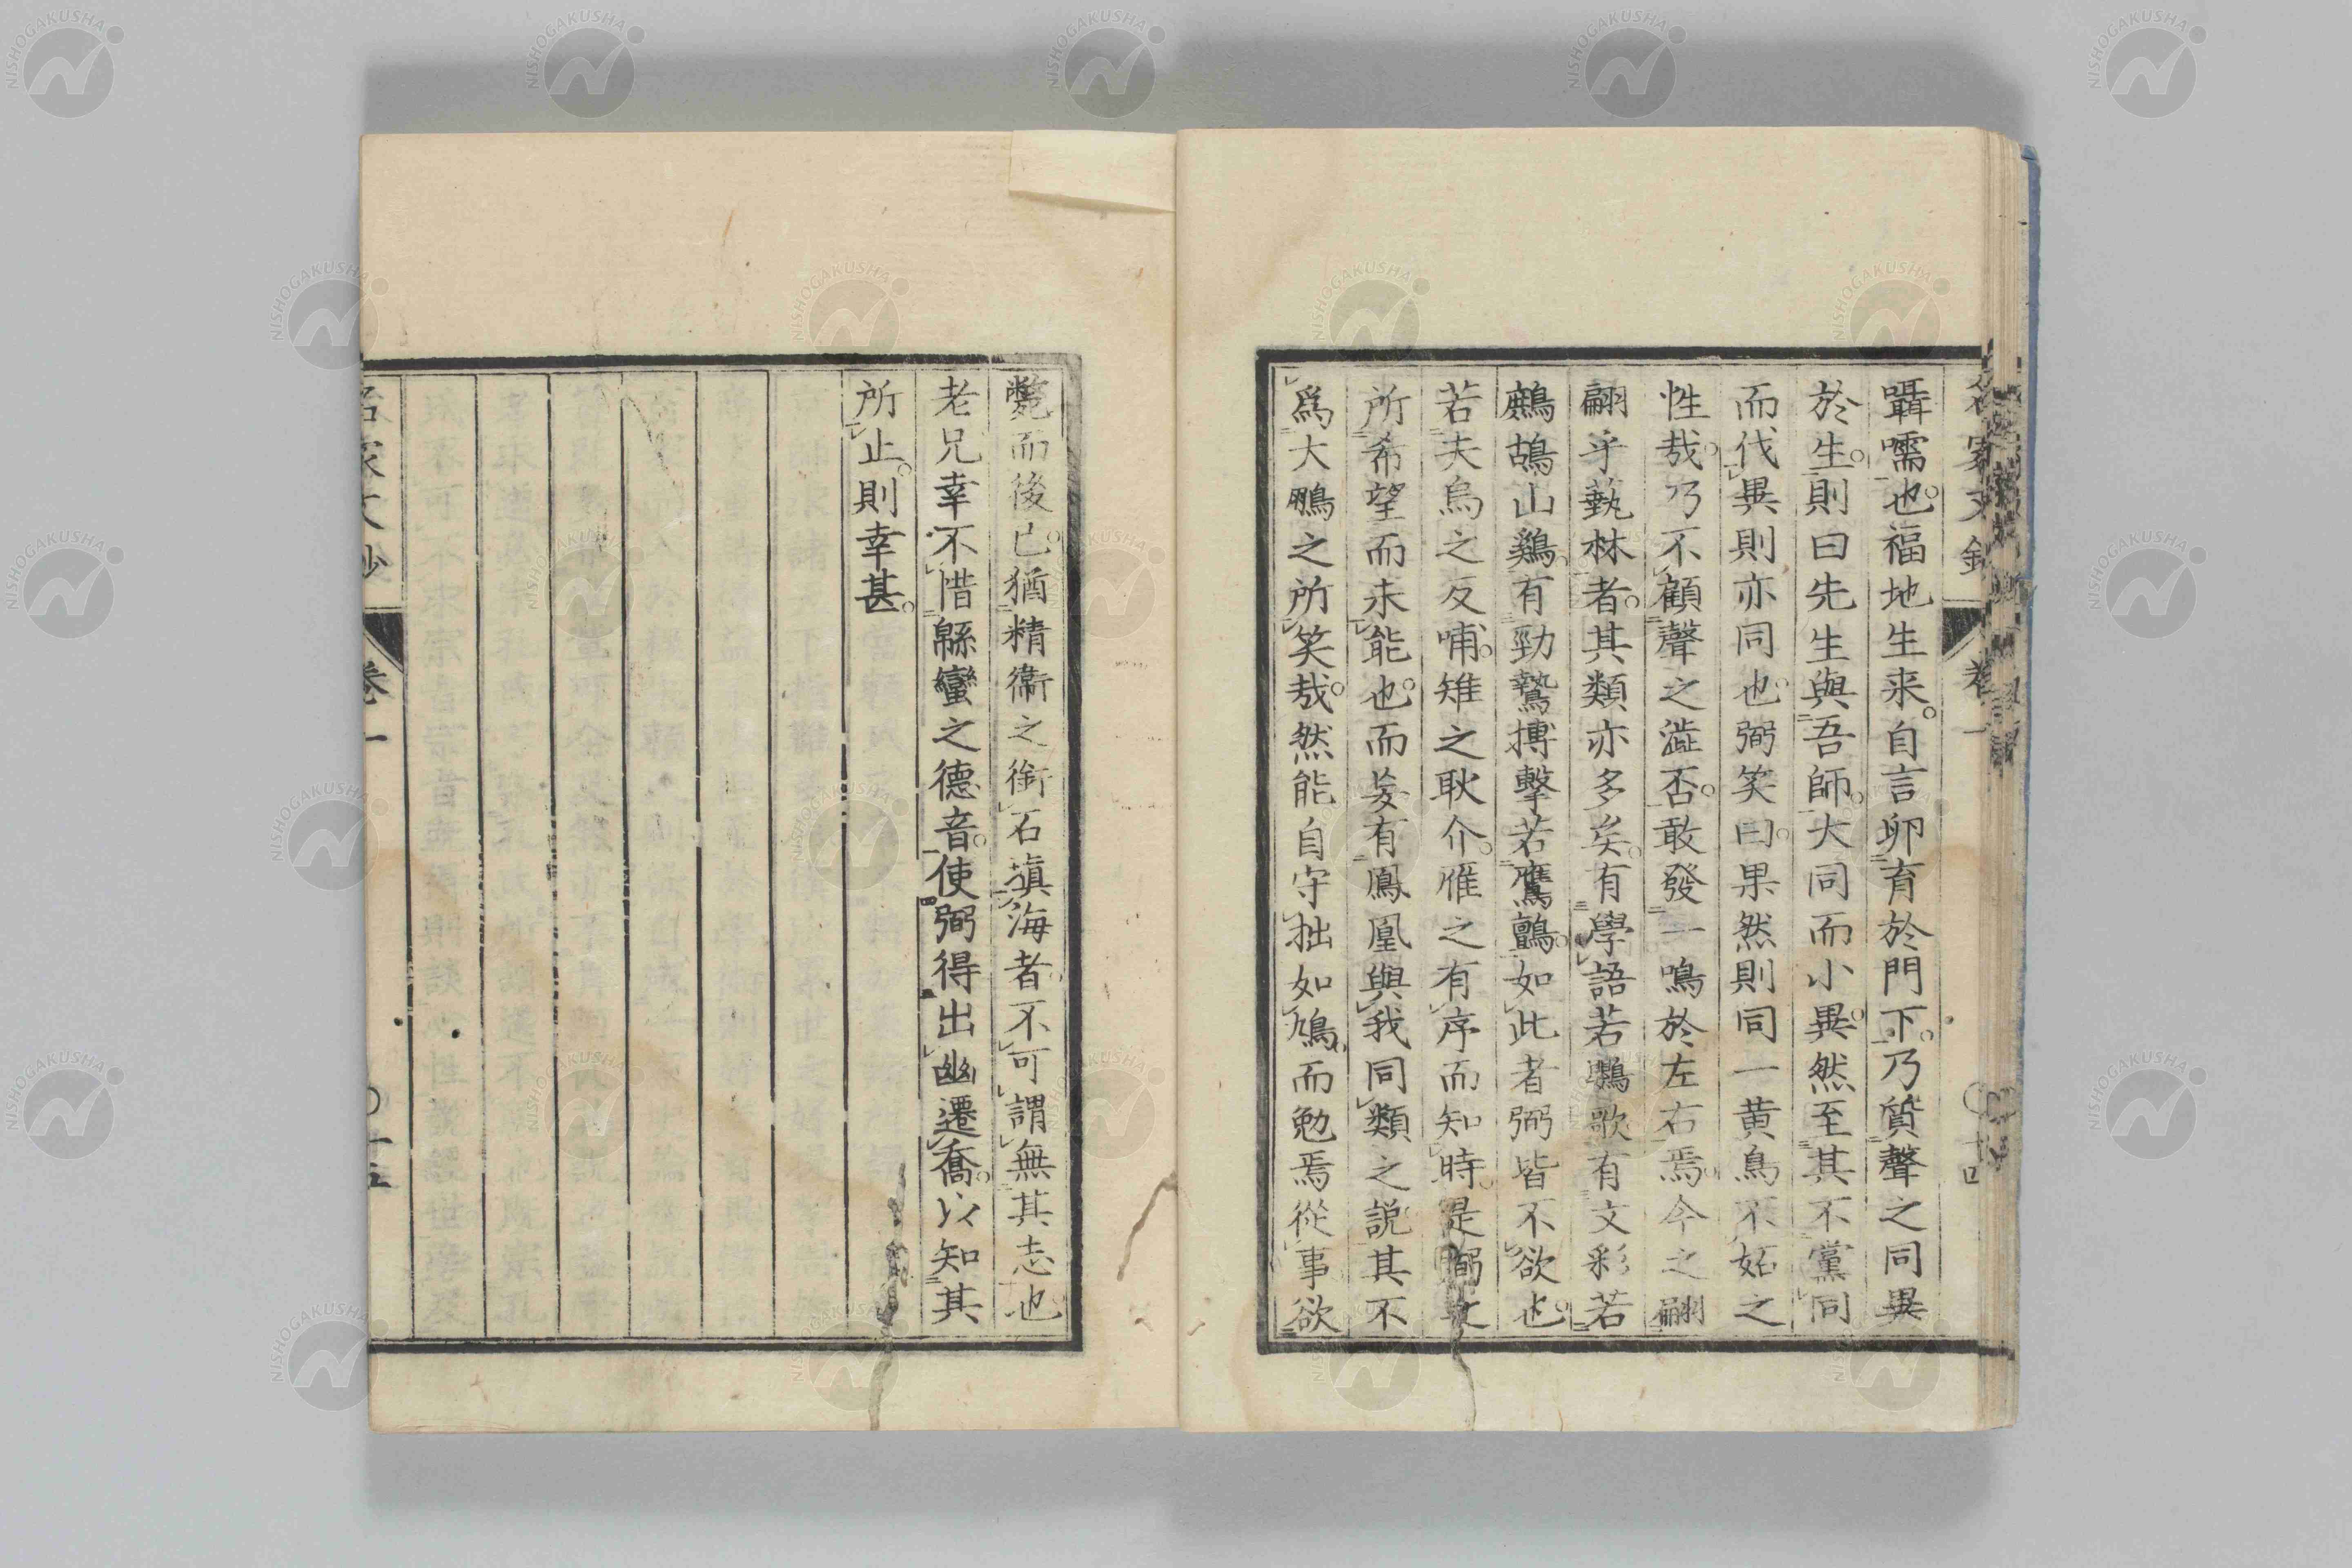 囁嚅也。福地生来。自言卵育於門下。乃質聲之同異
於生。則曰先生與吾師。大同而小異。然至其不黨同
而伐異則亦同也。弼笑曰。果然則同一黄鳥不妬之
性哉。乃不顧聲之澁否。敢發一鳴於左右焉。今之翩
翩乎藝林者。其類亦多矣。有學語若鸚歌有文彩若
鷓鴣山鷄。有勁鷙搏擊若鷹鸇。如此者弼皆不欲也。
若夫烏之反哺。雉之耿介。雁之有序而知時。是弼
所希望而未能也。而爰有鳳凰與我同類之説其不
爲大鵬之所笑哉。然能自守拙如鳩。而勉焉從事欲
斃而後已。猶精衞之銜石塡海者。不可謂無其志也
老兄幸不惜緜蠻之德音。使弼得出幽遷喬。以知其
所止。則幸甚。
卷一
名家文鈔
卷一
十五
NISHOGAKUSHA